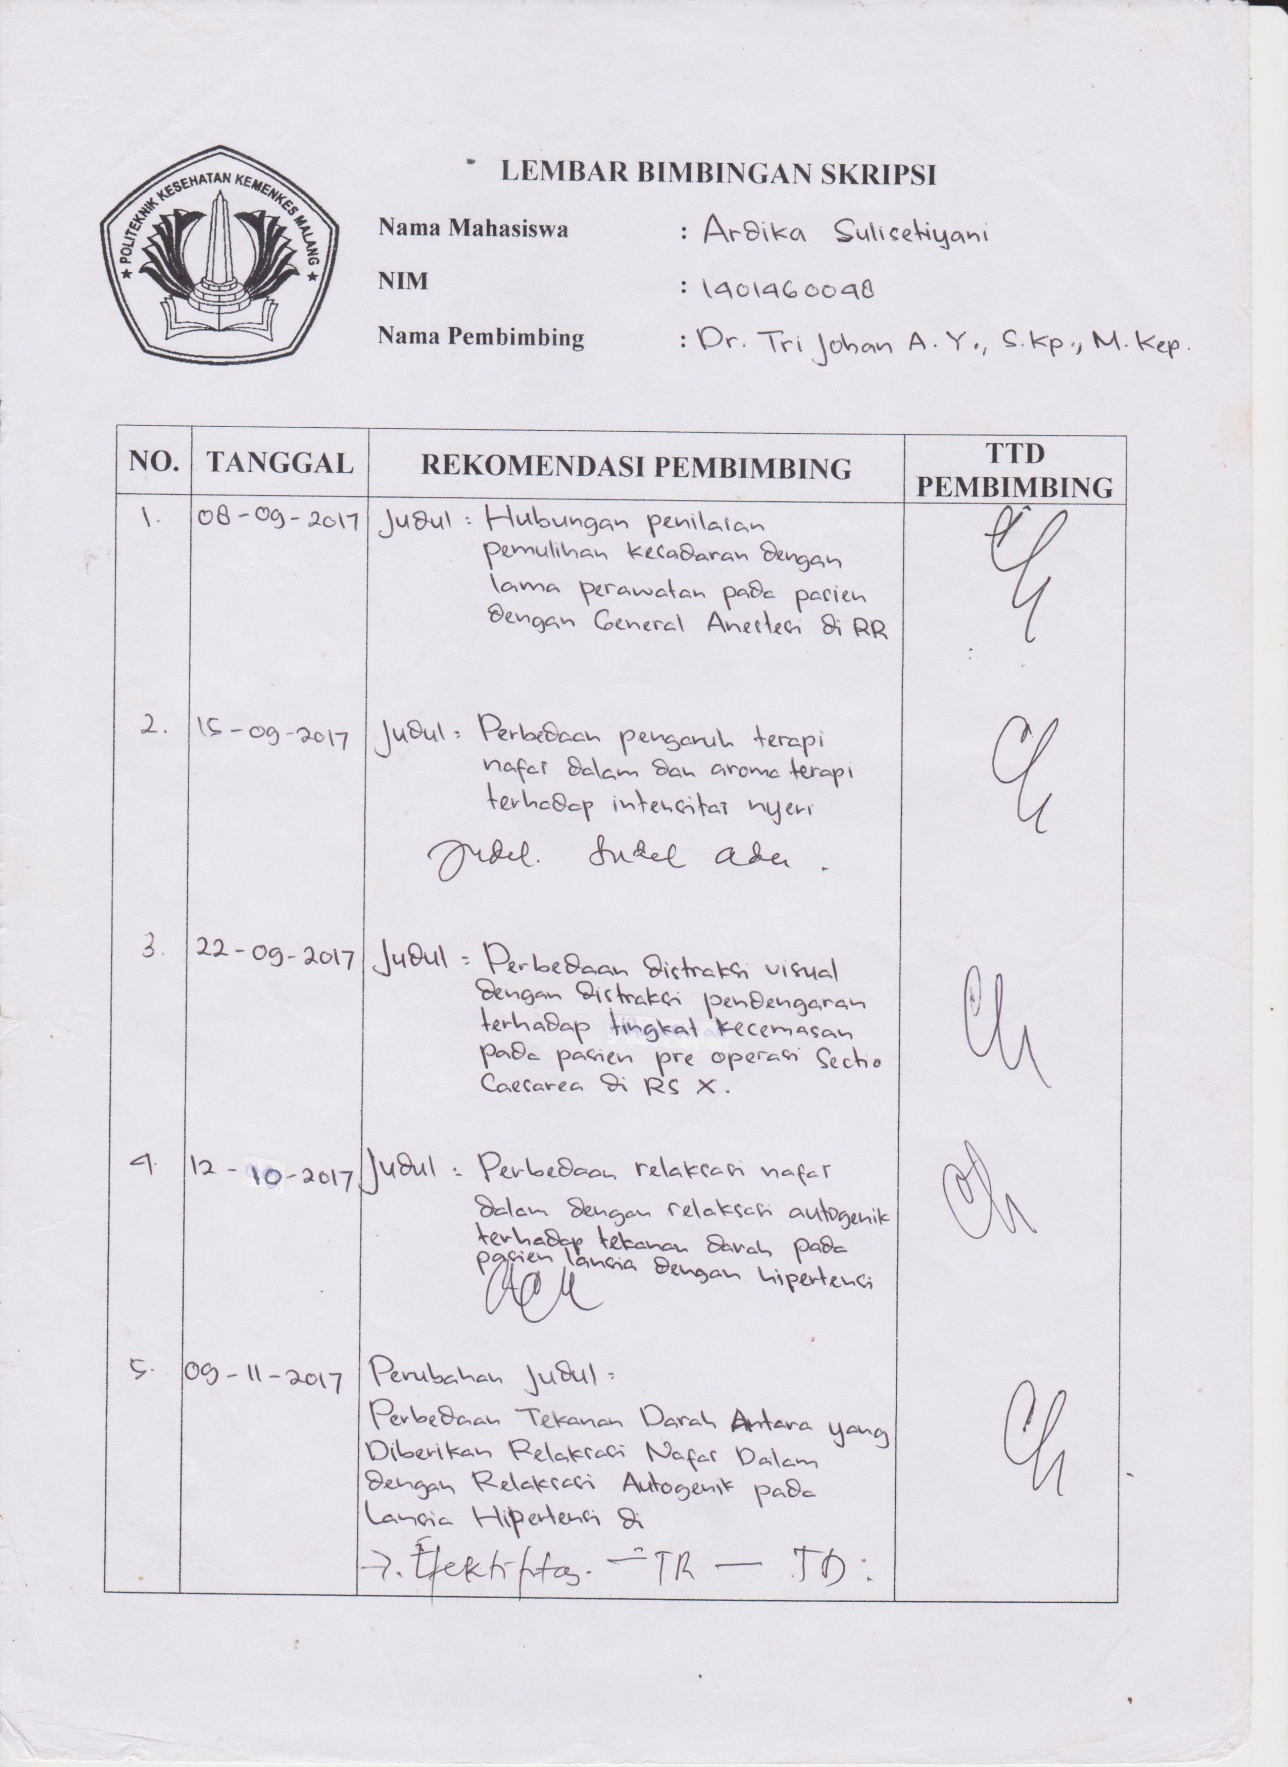 POLITEKNIK KESEHATAN KEMENKES MALANG
LEMBAR BIMBINGAN SKRIPSI
Nama Mahasiswa : Ardika Sulisetiyani
NIM : 1401460048
Nama Pembimbing : Dr. Tri Johan A.Y., S.Kp., M.Kep.
NO. TANGGAL REKOMENDASI PEMBIMBING TTD PEMBIMBING
1. 08-09-2017 Judul : Hubungan penilaian
pemulihan kesadaran dengan
lama perawatan pada pasien
dengan General Anestesi di RR
2. 15-09-2017 Judul : Perbedaan pengaruh terapi
nafas dalam dan aroma terapi
terhadap intensitas nyeri
3. 22-09-2017 Judul : Perbedaan distraksi visual
dengan distraksi pendengaran
terhadap tingkat kecemasan
pada pasien pre operasi Sectio
Caesarea di RS X.
4. 12-10-2017 Judul : Perbedaan relaksasi nafas
dalam dengan relaksasi autogenik
terhadap tekanan darah pada
pasien lansia dengan hipertensi
5. 09-11-2017 Perubahan Judul :
Perbedaan Tekanan Darah Antara yang
Diberikan Relaksasi Nafas Dalam
dengan Relaksasi Autogenik pada
Lansia Hipertensi di
→. Efektifitas. — TR — TD :